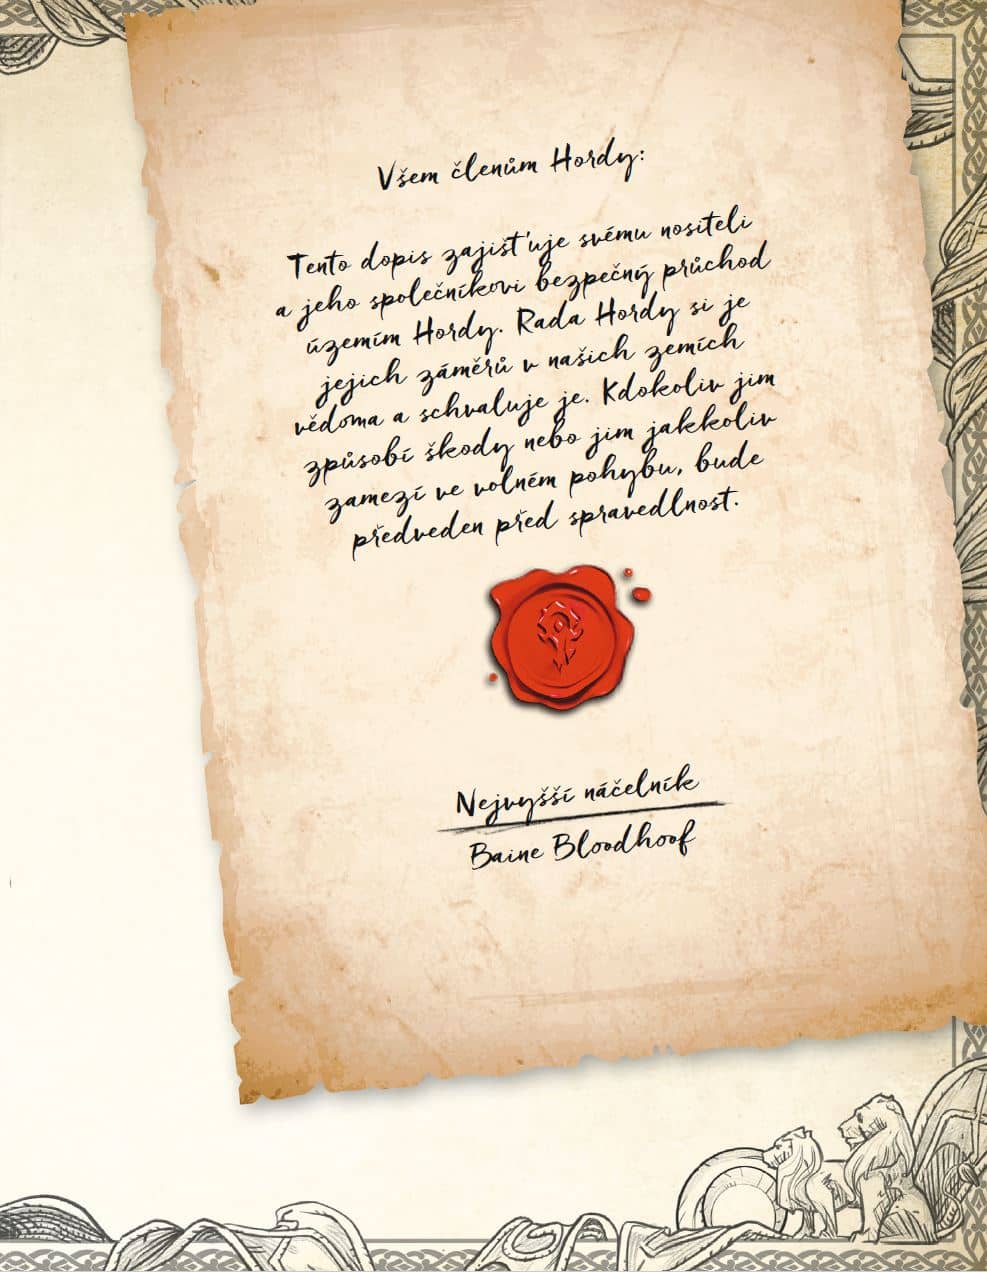 Všem členům Hordy:
Tento dopis zajišťuje svému nositeli
a jeho společníkovi bezpečný průchod
územím Hordy. Rada Hordy si je
jejich záměrů v našich zemích
vědoma a schvaluje je. Kdokoliv jim
způsobí škody nebo jim jakkoliv
zamezí ve volném pohybu, bude
předveden před spravedlnost.
Nejvyšší náčelník
Baine Bloodhoof